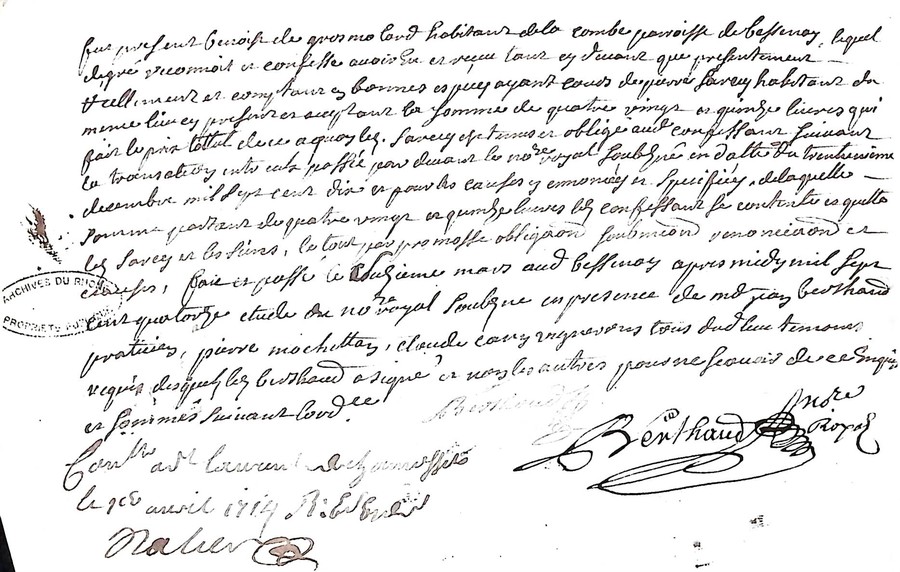 fut present benoist de grosmolard habitant de la combe paroisse de bessenay, lequel
de gré reconnoit et confesse avoir eu et reçu tant cy devant que presentement
reellement et comptant en bonnes especes ayant cours de pierre Savey habitant du
meme lieu cy present et aceptant la somme de quatre vingt et quinze livres qui
fait le prix total de ce a quoy led. Savey est tenu et obligé aud. confessant suivant
la transaction entre eux passée par devant le no.re royal soubzné en datte du trentieme
decembre mil sept cent dix et pour les causes y ennoncés et specifiées, de laquelle
somme partant de quatre vingt et quinze livres led. confessant se contente et quitte
led. Savey et les siens, le tout par promesse obligaon soubmiond renonciaond et
clauses, fait et passé le mars aud. bessenay apres midy mil sept
cent quatorze etude du no.re royal soubzne en presence de berthaud
praticien, pierre claude vignerons tous dud. lieu temoins
requis desquels led. berthaud a signé et non les autres pour ne scavoir de ce Enquis
et sommés suivant lord.ce
Berthaud
Berthaud no.re Royal
Con.lle a S.t laurent de chamousset
le avril 1714
ARCHIVES DU RHONE
PROPRIETE